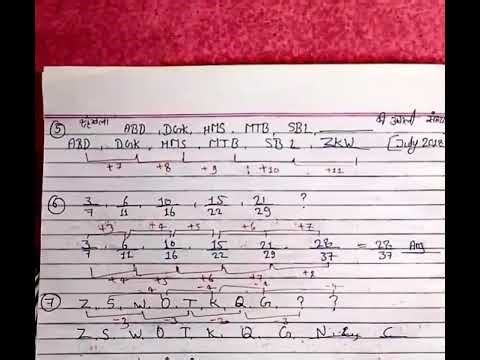 ⑤ श्रृंखला ABD, DGK, HMS, MTB, SBL, ______ की अगली
ABD, DGK, HMS, MTB, SBL, ZKW [July 2018
+7 +8 +9 +10 +11
⑥ 3/7, 6/11, 10/16, 15/22, 21/29 ?
+3 +4 +5 +6 +7
3/7, 6/11, 10/16, 15/22, 21/29, 28/37 = 28/37 Ans
+4 +5 +6 +7 +8
-4 -4 -4
⑦ Z, S, W, O, T, K, Q, G, ?, ?
-3 -3 -3
Z, S, W, O, T, K, Q, G, N, C